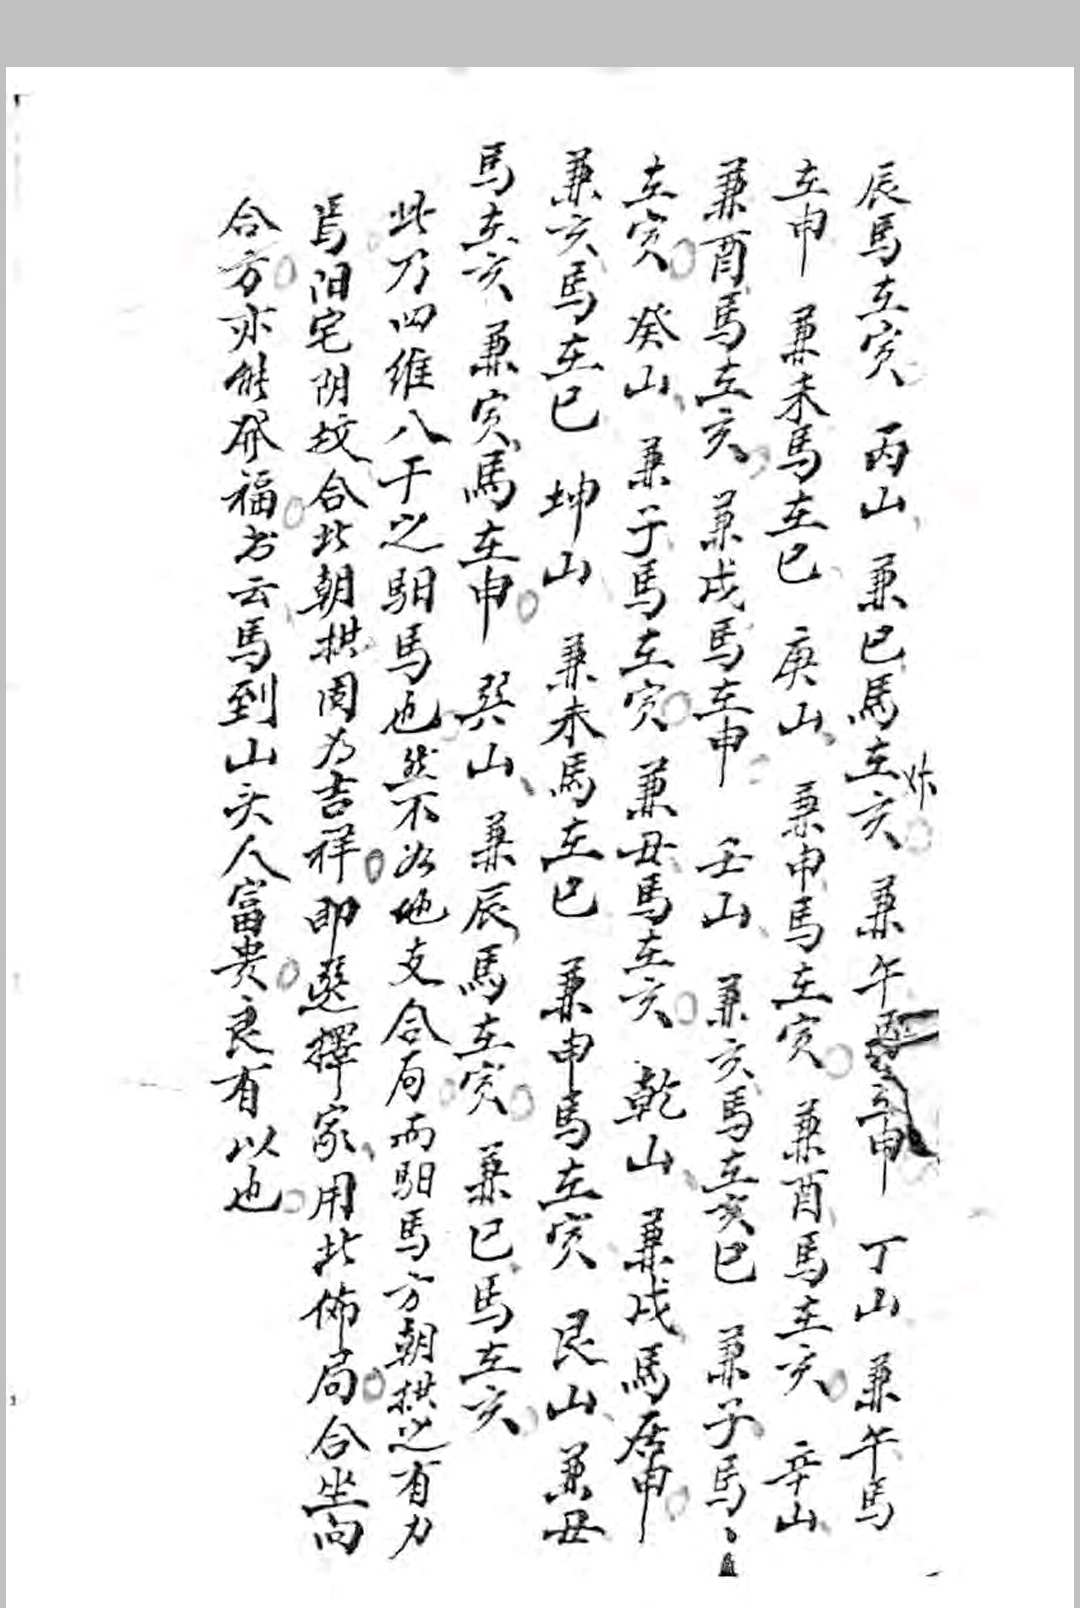 辰馬在寅　丙山　兼巳馬在亥　兼午馬在申　丁山　兼午馬
在申　兼未馬在巳　庚山　兼申馬在寅　兼酉馬在亥　辛山
兼酉馬在亥　兼戌馬在申　壬山　兼亥馬在亥巳　兼子馬
在寅　癸山　兼子馬在寅　兼丑馬在亥　乾山　兼戌馬居申
兼亥馬在巳　坤山　兼未馬在巳　兼申馬在寅　艮山　兼丑
馬在亥　兼寅馬在申　巽山　兼辰馬在寅　兼巳馬在亥
此乃四維八干之馹馬也然不如他支合局而馹馬方朝拱之有力
焉阳宅阴坟合此朝拱固为吉祥即選擇家用此佈局合坐向
合方亦能发福书云馬到山头人富贵良有以也